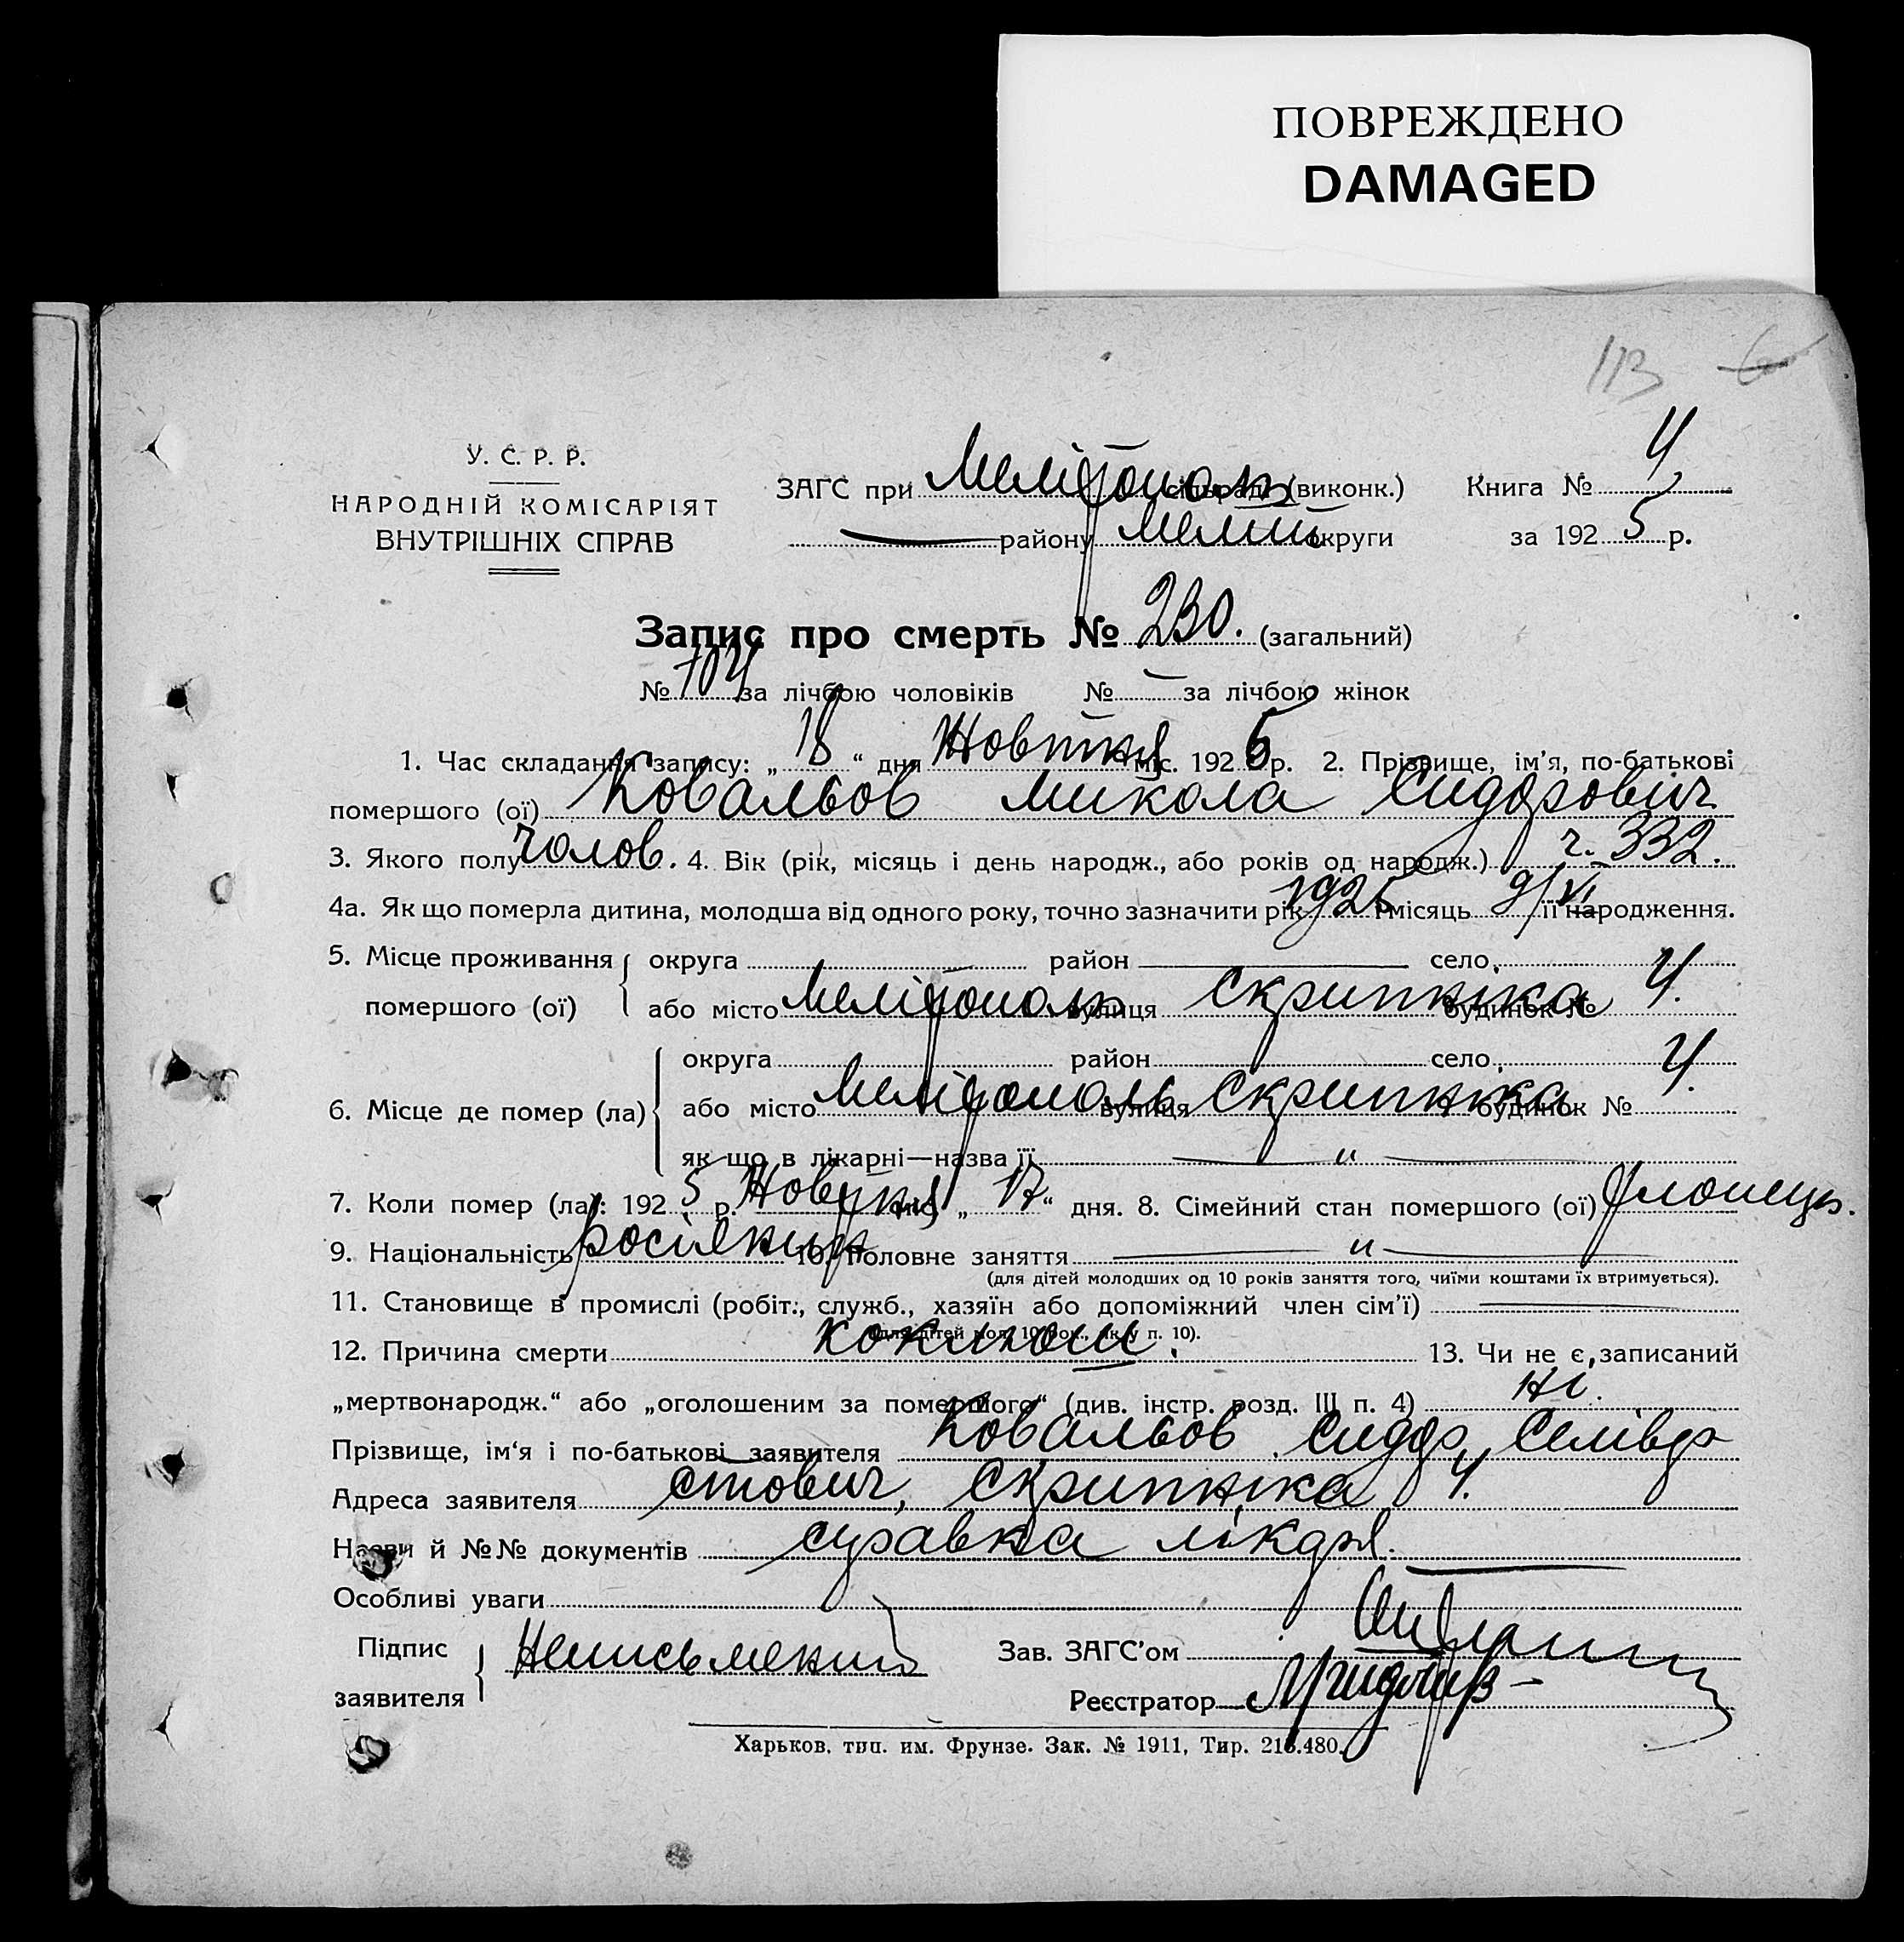 ПОВРЕЖДЕНО
DAMAGED
113 6
У. С. Р. Р.
НАРОДНІЙ КОМІСАРІЯТ
ВНУТРІШНІХ СПРАВ
ЗАГС при Мелітополь сільраді (виконк.) Книга № 4
району Меліт округи за 1925 р.
Запис про смерть № 230. (загальний)
№ 104 за лічбою чоловіків № — за лічбою жінок
1. Час складання запису: „18“ дня Жовтня міс. 1925 р. 2. Прізвище, ім’я, по-батькові
помершого (ої) Ковальов Микола Сидорович
3. Якого полу чолов. 4. Вік (рік, місяць і день народж., або років од народж.) ч. 332.
4а. Як що померла дитина, молодша від одного року, точно зазначити рік 1925 і місяць 9/VI її народження.
5. Місце проживання округа — район — село
помершого (ої) або місто Мелітополь вулиця Скрипника будинок № 4.
6. Місце де помер (ла) округа район село
або місто Мелітополь вулиця Скрипника будинок № 4.
як що в лікарні—назва її — „ —
7. Коли помер (ла): 1925 р. Жовтня міс. „17“ дня. 8. Сімейний стан помершого (ої) хлопець.
9. Національність росіянин 10. Головне заняття — „ —
(для дітей молодших од 10 років заняття того, чиїми коштами їх втримується).
11. Становище в промислі (робіт., служб., хазяїн або допоміжний член сім’ї) —
(для дітей мол. 10 рок., як у п. 10).
12. Причина смерти коклюш. 13. Чи не є записаний
„мертвонародж.“ або „оголошеним за померлого“ (див. інстр. розд. III п. 4) ні.
Прізвище, ім‘я і по-батькові заявителя Ковальов Сидор Селівер
Адреса заявителя стович, Скрипника 4.
Назви й №№ документів справка лікаря.
Особливі уваги
Підпис заявителя Неписьменний Зав. ЗАГС’ом
Реєстратор
Харьков, тип. им. Фрунзе. Зак. № 1911, Тир. 216.480.